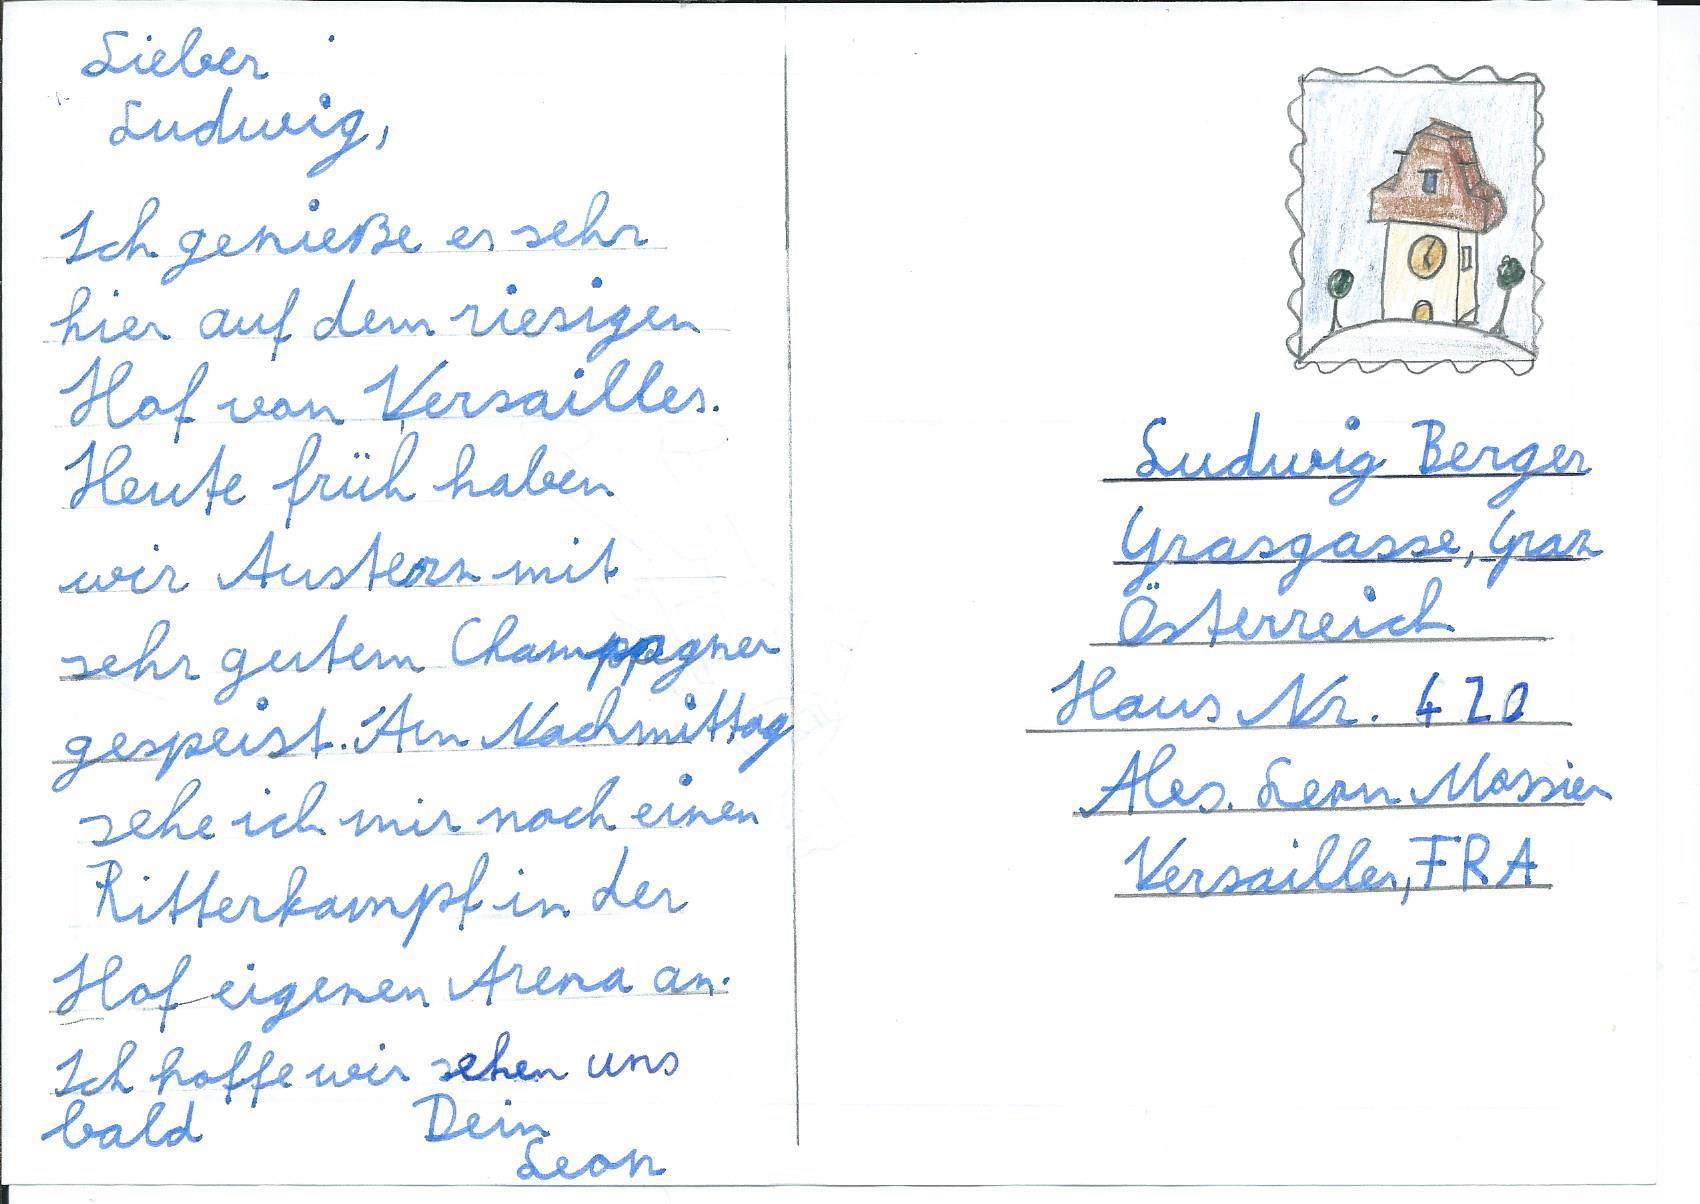 Lieber
Ludwig,
Ich genieße es sehr
hier auf dem riesigen
Hof von Versailles.
Heute früh haben
wir Austern mit
sehr gutem Champagner
gespeist. Am Nachmittag
sehe ich mir noch einen
Ritterkampf in der
Hof eigenen Arena an.
Ich hoffe wir sehen uns
bald Dein
Leon
Ludwig Berger
Grasgasse, Graz
Österreich
Haus Nr. 420
Abs. Leon Mossier
Versailles, FRA